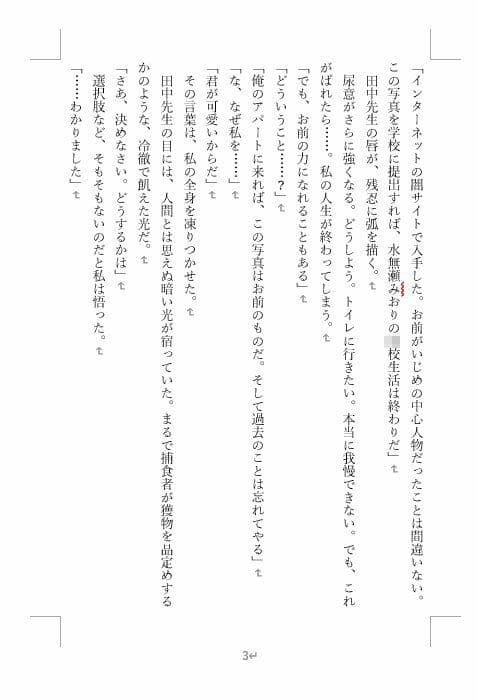 「インターネットの闇サイトで入手した。お前がいじめの中心人物だったことは間違いない。
この写真を学校に提出すれば、水無瀬みおりの校生活は終わりだ」
田中先生の唇が、残忍に弧を描く。
尿意がさらに強くなる。どうしよう。トイレに行きたい。本当に我慢できない。でも、これ
がばれたら……。私の人生が終わってしまう。
「でも、お前の力になれることもある」
「どういうこと……？」
「俺のアパートに来れば、この写真はお前のものだ。そして過去のことは忘れてやる」
「な、なぜ私を……」
「君が可愛いからだ」
その言葉は、私の全身を凍りつかせた。
田中先生の目には、人間とは思えぬ暗い光が宿っていた。まるで捕食者が獲物を品定めする
かのような、冷徹で飢えた光だ。
「さあ、決めなさい。どうするかは」
選択肢など、そもそもないのだと私は悟った。
「……わかりました」
3